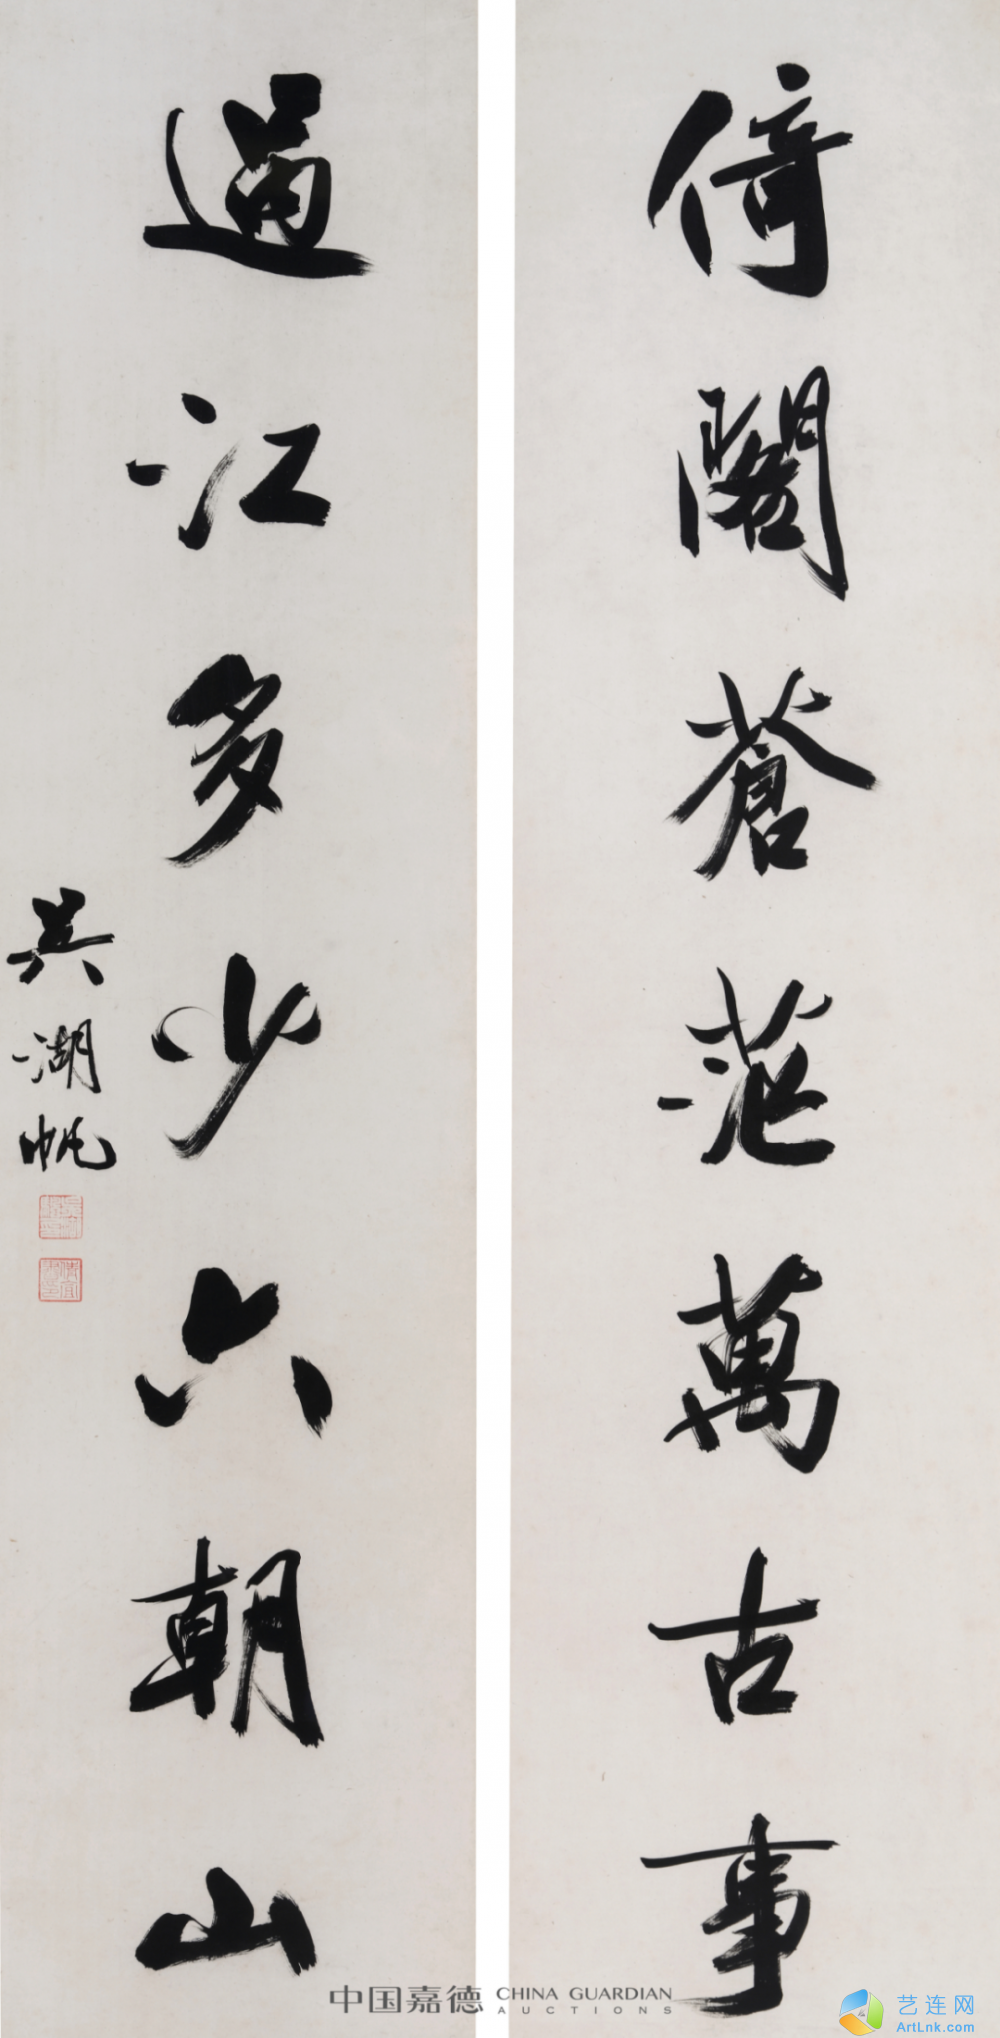 倚閣蒼茫萬古事
過江多少六朝山
吳湖帆
中国嘉德 CHINA GUARDIAN AUCTIONS
艺连网
ArtLnk.com